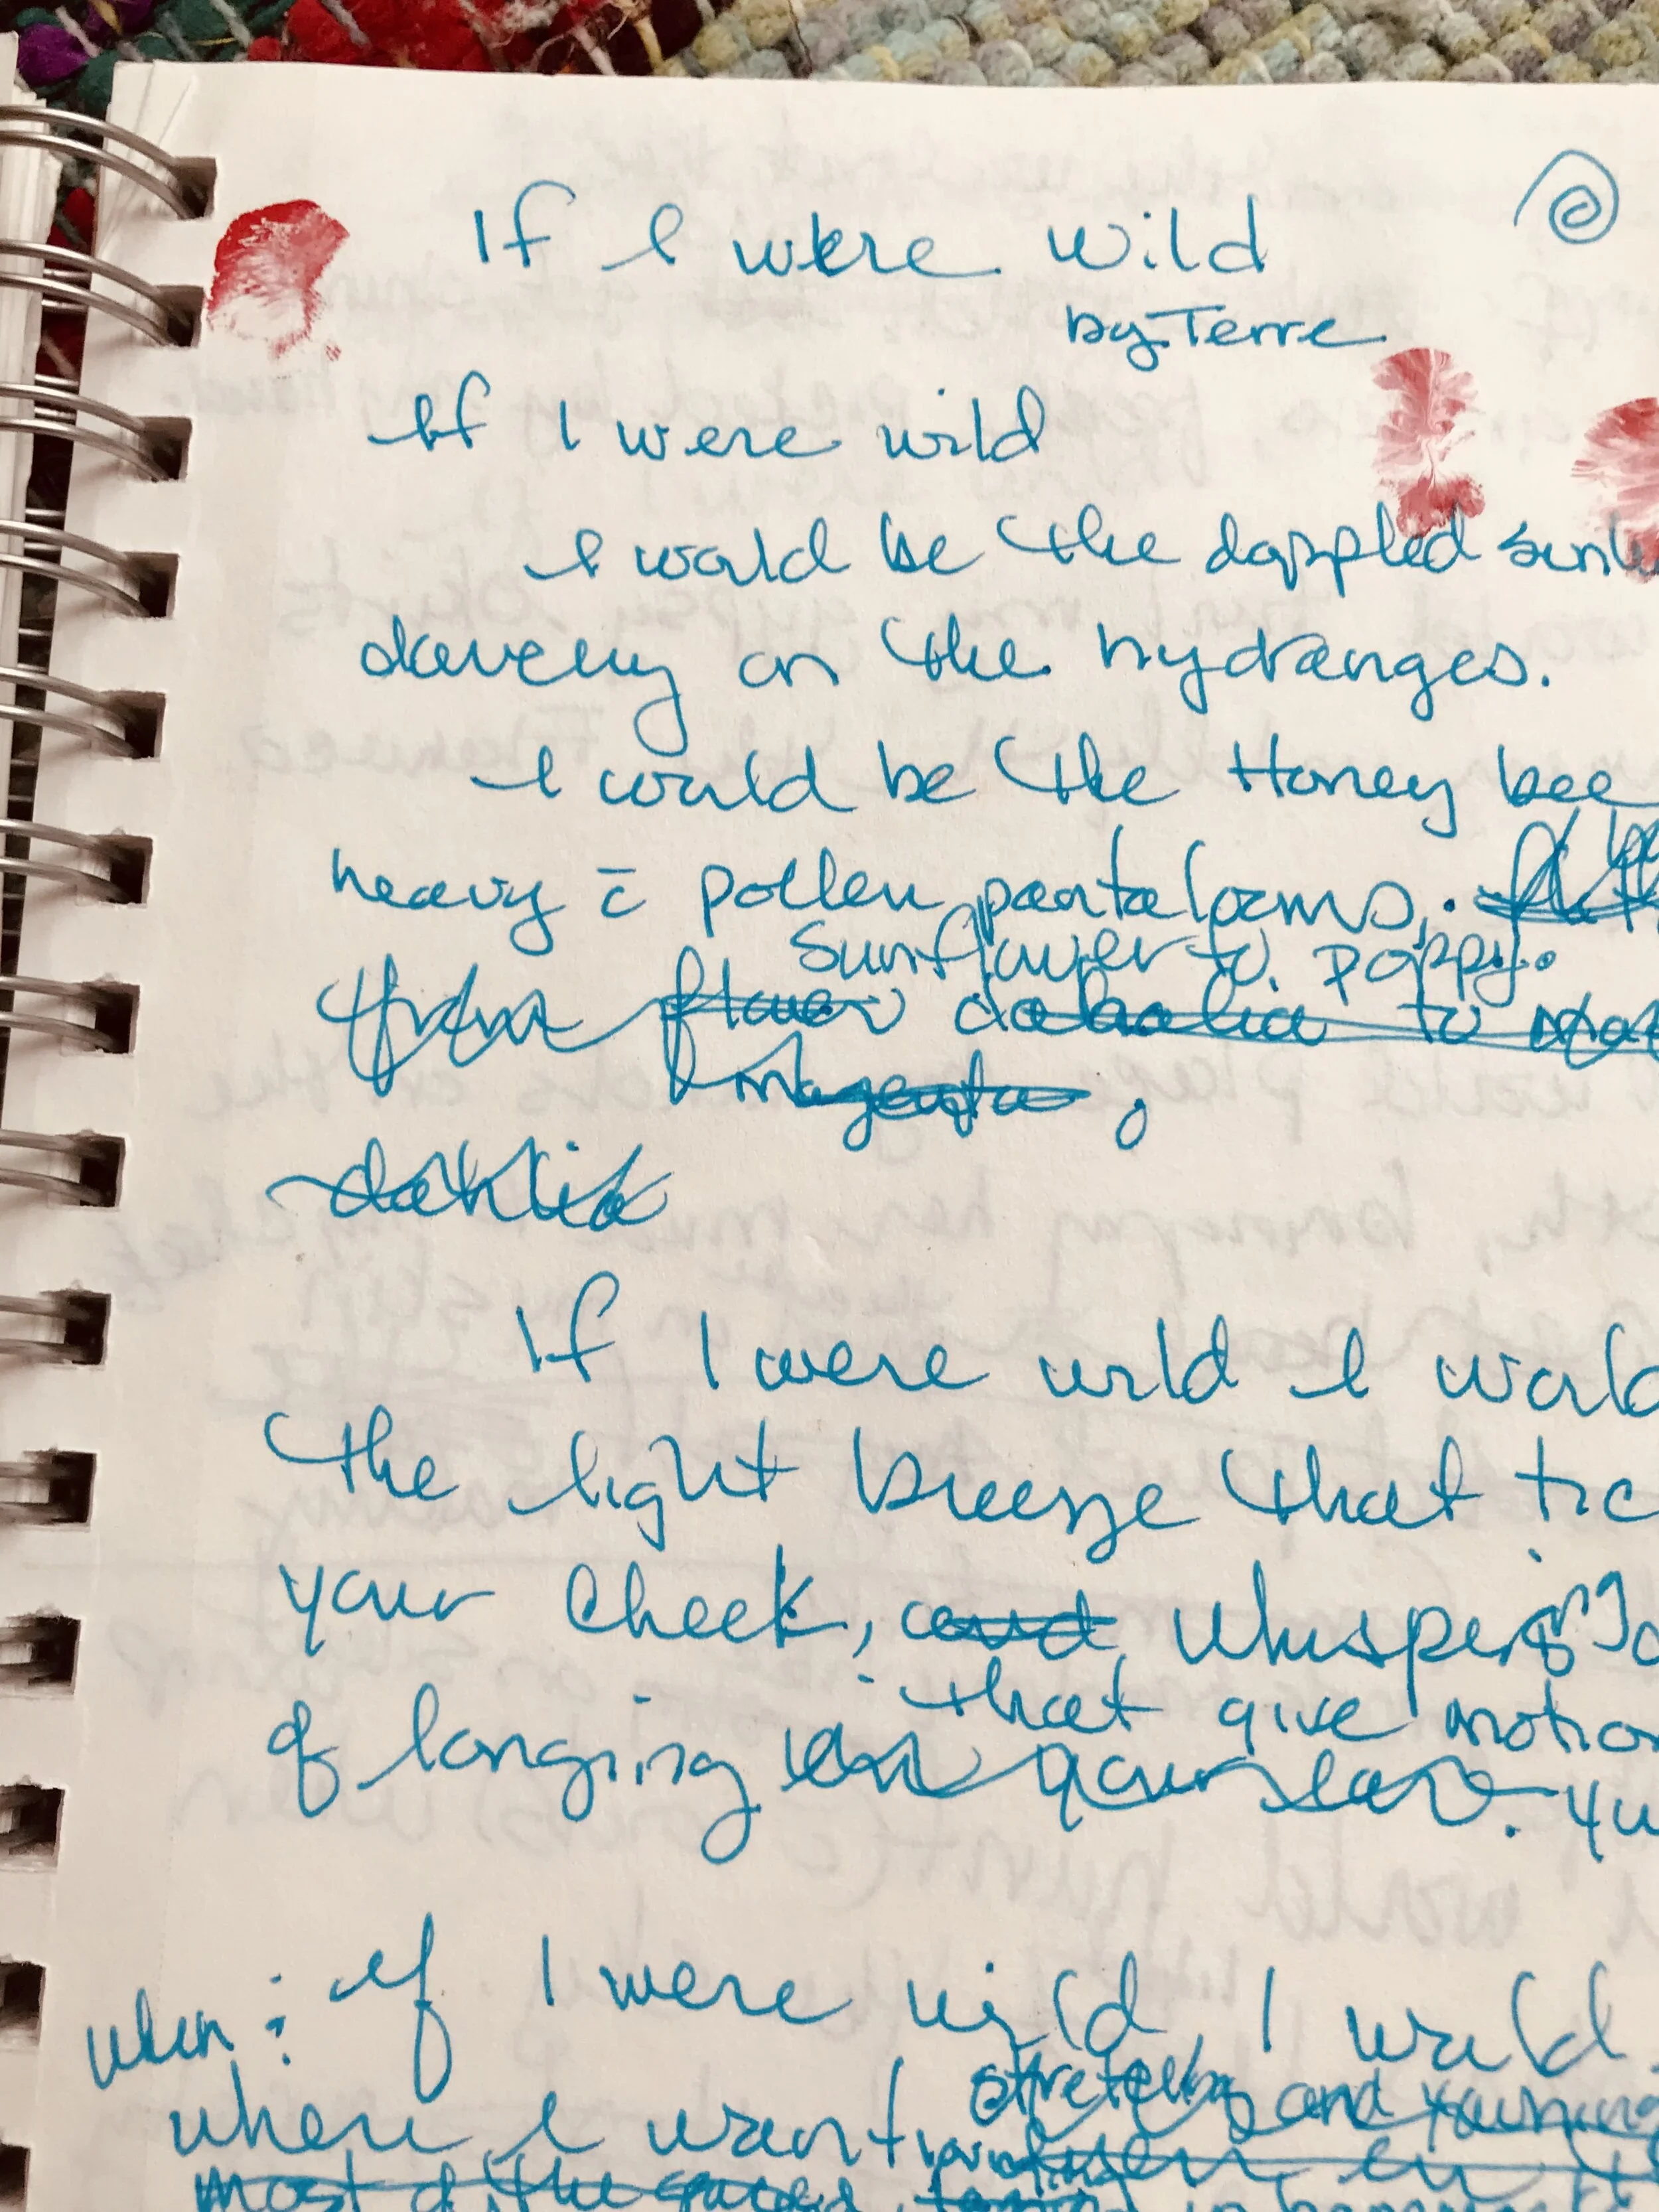 If I were wild
by Terre
If I were wild
I would be the dappled
on the hydranges.
I would be the Honey bee
heavy c̄ pollen pantalooms.
sunflower to poppy.
from flower to
magenta
dahlia
If I were wild I would
the light breeze that tic
your cheek, and whispers
that give motion
of longing in your ear. yu
when: if I were wild, I would
stretching and yawning
where I want
most of the